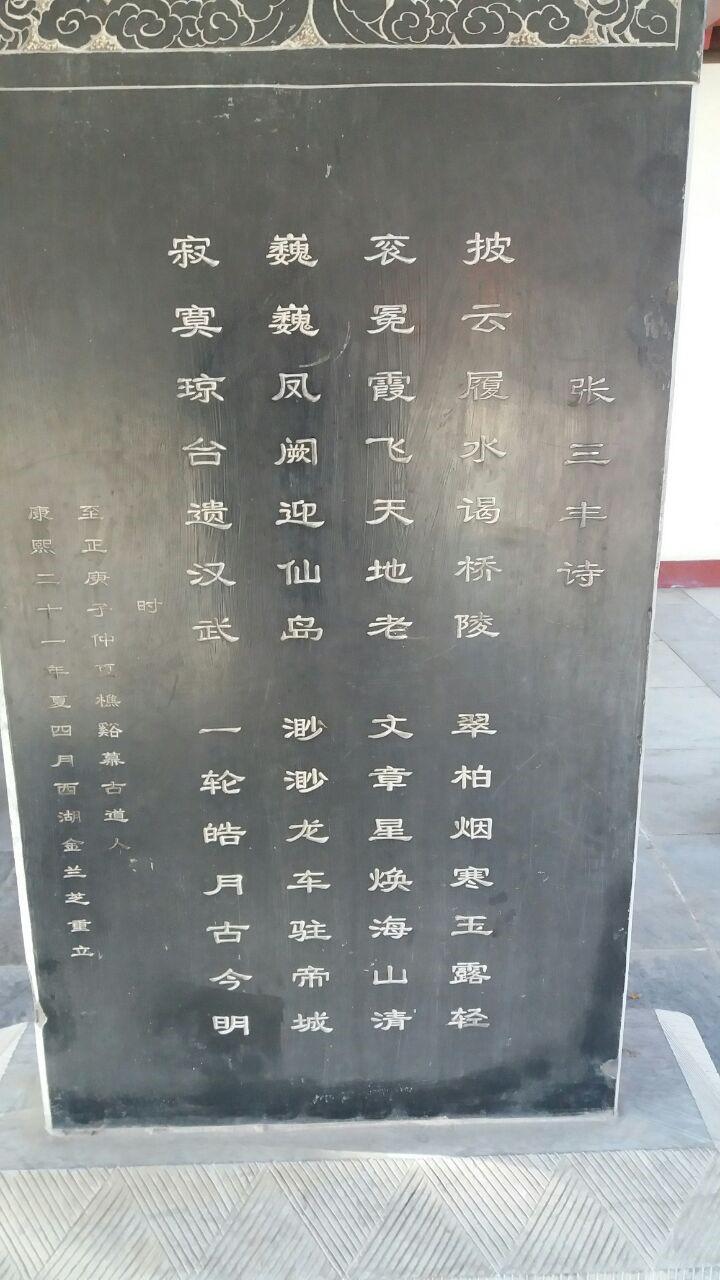 张三丰诗
披云履水谒桥陵 翠柏烟寒玉露轻
衮冕霞飞天地老 文章星焕海山清
巍巍凤阙迎仙岛 渺渺龙车驻帝城
寂寞琼台遗汉武 一轮皓月古今明
时
至正庚子仲夏樵谿慕古道人
康熙二十一年夏四月西湖金兰芝重立